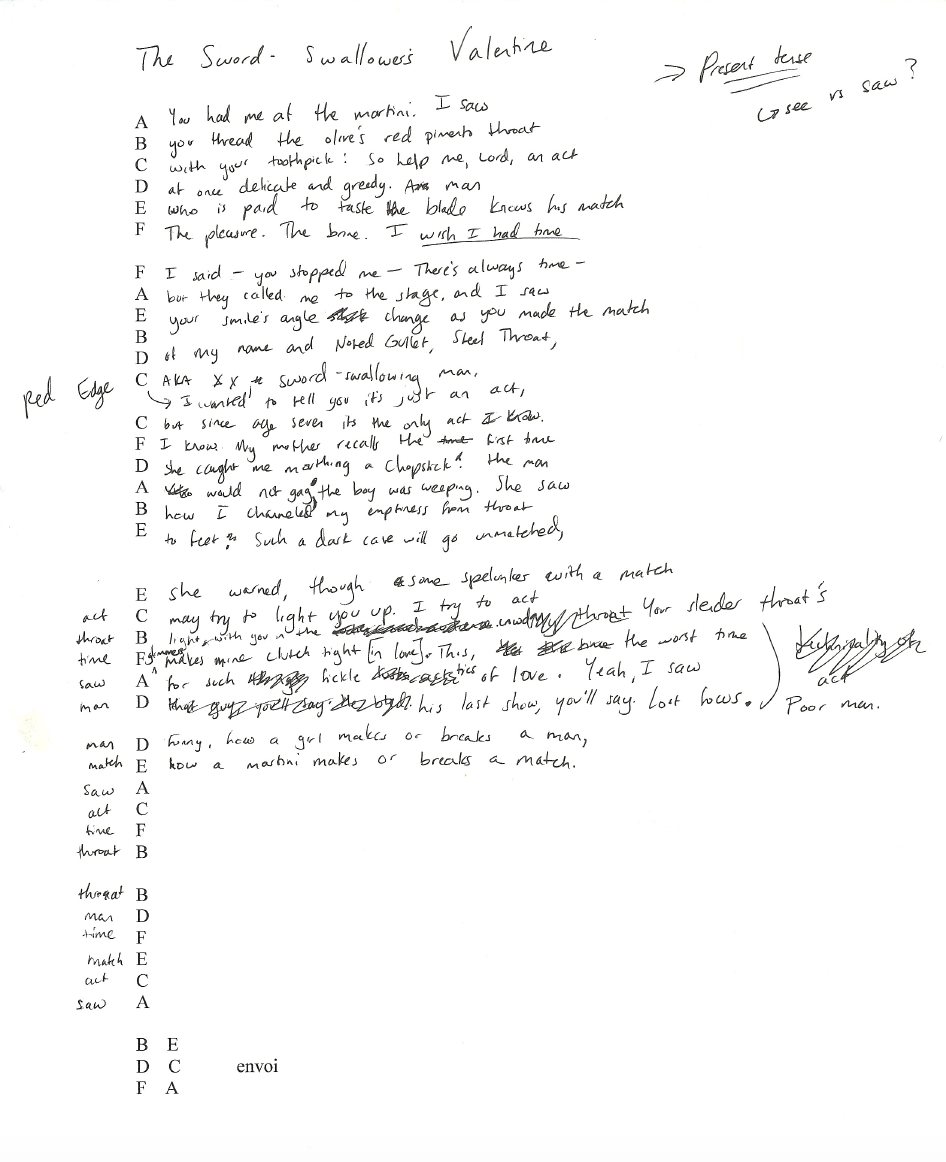 The Sword-Swallower's Valentine
→ Present tense
↳ see vs saw?
A You had me at the martini. I saw
B you thread the olive's red pimento throat
C with your toothpick! So help me, Lord, an act
D at once delicate and greedy. A man
E who is paid to taste the blade knows his match
F The pleasure. The brine. I wish I had time
F I said – you stopped me – There's always time –
A but they called me to the stage, and I saw
E your smile's angle change as you made the match
B
D of my name and Noted Gullet, Steel Throat,
Red Edge
C AKA XX sword-swallowing man.
↳ I wanted to tell you it's just an act,
C but since age seven its the only act
F I know. My mother recalls the first time
D she caught me mouthing a chopstick: the man
A would not gag, the boy was weeping. She saw
B how I channeled my emptiness from throat
E to feet: Such a dark cave will go unmatched,
E she warned, though some spelunker with a match
act C may try to light you up. I try to act
throat B light, with you in the throat Your slender throat's
time F shimmer makes mine clutch tight [in love]. This, the worst time
saw A for such fickle tics of love. Yeah, I saw
man D his last show, you'll say. Lost focus. Poor man.
act
man D Funny, how a girl makes or breaks a man,
match E how a martini makes or breaks a match.
saw A
act C
time F
throat B
throat B
man D
time F
match E
act C
saw A
B E
D C envoi
F A